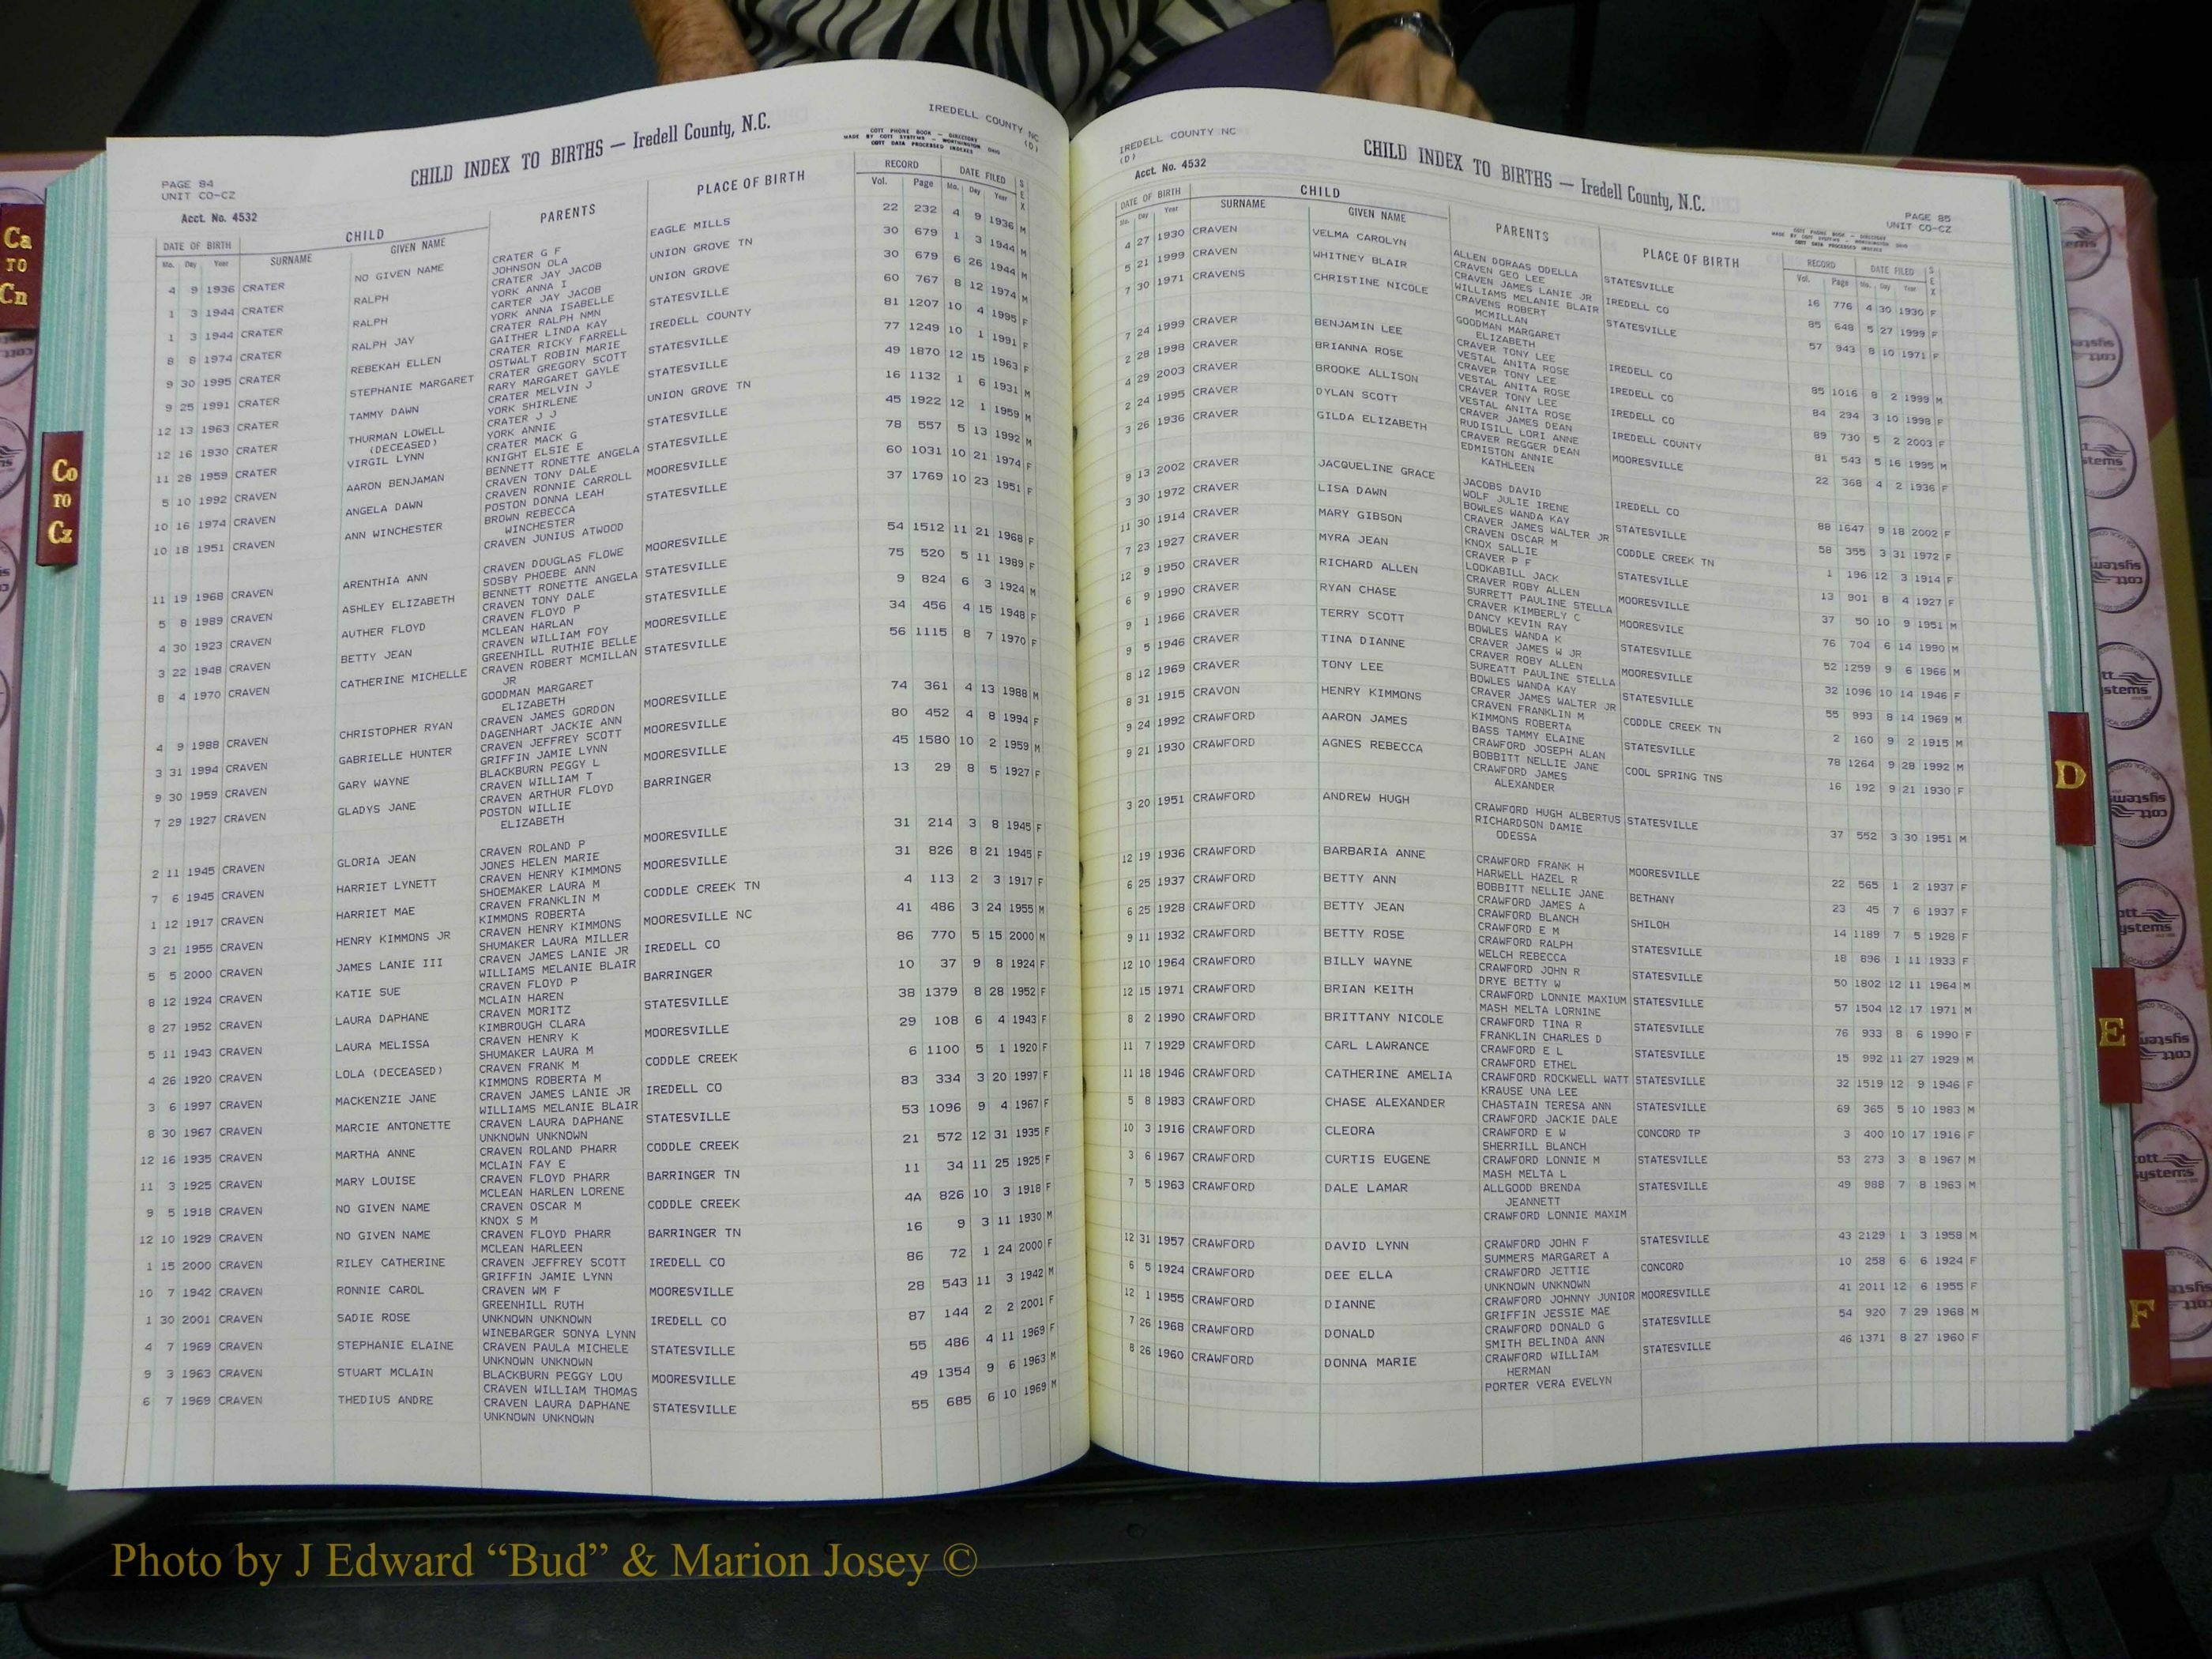 IREDELL COUNTY NC
(D)
CHILD INDEX TO BIRTHS — Iredell County, N.C.
COTT PHONE BOOK — DIRECTORY
MADE BY COTT SYSTEMS — WORTHINGTON OHIO
COTT DATA PROCESSED INDEXES
PAGE 84
UNIT CO-CZ
Acct. No. 4532
DATE OF BIRTH CHILD PARENTS PLACE OF BIRTH RECORD DATE FILED SEX
Mo. Day Year SURNAME GIVEN NAME Vol. Page Mo. Day Year
4 9 1936 CRATER NO GIVEN NAME CRATER G F EAGLE MILLS 22 232 4 9 1936 M
JOHNSON OLA
1 3 1944 CRATER RALPH CRATER JAY JACOB UNION GROVE TN 30 679 1 3 1944 M
YORK ANNA I
1 3 1944 CRATER RALPH CARTER JAY JACOB UNION GROVE 30 679 6 26 1944 M
YORK ANNA ISABELLE
8 8 1974 CRATER RALPH JAY CRATER RALPH NMN STATESVILLE 60 767 8 12 1974 M
GAITHER LINDA KAY
9 30 1995 CRATER REBEKAH ELLEN CRATER RICKY FARRELL IREDELL COUNTY 81 1207 10 4 1995 F
OSTWALT ROBIN MARIE
9 25 1991 CRATER STEPHANIE MARGARET CRATER GREGORY SCOTT STATESVILLE 77 1249 10 1 1991 F
RARY MARGARET GAYLE
12 13 1963 CRATER TAMMY DAWN CRATER MELVIN J STATESVILLE 49 1870 12 15 1963 F
YORK SHIRLENE
12 16 1930 CRATER THURMAN LOWELL CRATER J J UNION GROVE TN 16 1132 1 6 1931 M
(DECEASED) YORK ANNIE
11 28 1959 CRATER VIRGIL LYNN CRATER MACK G STATESVILLE 45 1922 12 1 1959 M
KNIGHT ELSIE E
5 10 1992 CRAVEN AARON BENJAMAN BENNETT RONETTE ANGELA STATESVILLE 78 557 5 13 1992 M
CRAVEN TONY DALE
10 16 1974 CRAVEN ANGELA DAWN CRAVEN RONNIE CARROLL MOORESVILLE 60 1031 10 21 1974 F
POSTON DONNA LEAH
10 18 1951 CRAVEN ANN WINCHESTER BROWN REBECCA STATESVILLE 37 1769 10 23 1951 F
WINCHESTER
CRAVEN JUNIUS ATWOOD
11 19 1968 CRAVEN ARENTHIA ANN CRAVEN DOUGLAS FLOWE MOORESVILLE 54 1512 11 21 1968 F
SOSBY PHOEBE ANN
5 8 1989 CRAVEN ASHLEY ELIZABETH BENNETT RONETTE ANGELA STATESVILLE 75 520 5 11 1989 F
CRAVEN TONY DALE
4 30 1923 CRAVEN AUTHER FLOYD CRAVEN FLOYD P STATESVILLE 9 824 6 3 1924 M
MCLEAN HARLAN
3 22 1948 CRAVEN BETTY JEAN CRAVEN WILLIAM FOY MOORESVILLE 34 456 4 15 1948 F
GREENHILL RUTHIE BELLE
8 4 1970 CRAVEN CATHERINE MICHELLE CRAVEN ROBERT MCMILLAN STATESVILLE 56 1115 8 7 1970 F
JR
GOODMAN MARGARET
ELIZABETH
4 9 1988 CRAVEN CHRISTOPHER RYAN CRAVEN JAMES GORDON MOORESVILLE 74 361 4 13 1988 M
DAGENHART JACKIE ANN
3 31 1994 CRAVEN GABRIELLE HUNTER CRAVEN JEFFREY SCOTT MOORESVILLE 80 452 4 8 1994 F
GRIFFIN JAMIE LYNN
9 30 1959 CRAVEN GARY WAYNE BLACKBURN PEGGY L MOORESVILLE 45 1580 10 2 1959 M
CRAVEN WILLIAM T
7 29 1927 CRAVEN GLADYS JANE CRAVEN ARTHUR FLOYD BARRINGER 13 29 8 5 1927 F
POSTON WILLIE
ELIZABETH
2 11 1945 CRAVEN GLORIA JEAN CRAVEN ROLAND P MOORESVILLE 31 214 3 8 1945 F
JONES HELEN MARIE
7 6 1945 CRAVEN HARRIET LYNETT CRAVEN HENRY KIMMONS MOORESVILLE 31 826 8 21 1945 F
SHOEMAKER LAURA M
1 12 1917 CRAVEN HARRIET MAE CRAVEN FRANKLIN M CODDLE CREEK TN 4 113 2 3 1917 F
KIMMONS ROBERTA
3 21 1955 CRAVEN HENRY KIMMONS JR CRAVEN HENRY KIMMONS MOORESVILLE NC 41 486 3 24 1955 M
SHUMAKER LAURA MILLER
5 5 2000 CRAVEN JAMES LANIE III CRAVEN JAMES LANIE JR IREDELL CO 86 770 5 15 2000 M
WILLIAMS MELANIE BLAIR
8 12 1924 CRAVEN KATIE SUE CRAVEN FLOYD P BARRINGER 10 37 9 8 1924 F
MCLAIN HAREN
8 27 1952 CRAVEN LAURA DAPHANE CRAVEN MORITZ STATESVILLE 38 1379 8 28 1952 F
KIMBROUGH CLARA
5 11 1943 CRAVEN LAURA MELISSA CRAVEN HENRY K MOORESVILLE 29 108 6 4 1943 F
SHUMAKER LAURA M
4 26 1920 CRAVEN LOLA (DECEASED) CRAVEN FRANK M CODDLE CREEK 6 1100 5 1 1920 F
KIMMONS ROBERTA M
3 6 1997 CRAVEN MACKENZIE JANE CRAVEN JAMES LANIE JR IREDELL CO 83 334 3 20 1997 F
WILLIAMS MELANIE BLAIR
8 30 1967 CRAVEN MARCIE ANTONETTE CRAVEN LAURA DAPHANE STATESVILLE 53 1096 9 4 1967 F
UNKNOWN UNKNOWN
12 16 1935 CRAVEN MARTHA ANNE CRAVEN ROLAND PHARR CODDLE CREEK 21 572 12 31 1935 F
MCLAIN FAY E
11 3 1925 CRAVEN MARY LOUISE CRAVEN FLOYD PHARR BARRINGER TN 11 34 11 25 1925 F
MCLEAN HARLEN LORENE
9 5 1918 CRAVEN NO GIVEN NAME CRAVEN OSCAR M CODDLE CREEK 4A 826 10 3 1918 F
KNOX S M
12 10 1929 CRAVEN NO GIVEN NAME CRAVEN FLOYD PHARR BARRINGER TN 16 9 3 11 1930 M
MCLEAN HARLEEN
1 15 2000 CRAVEN RILEY CATHERINE CRAVEN JEFFREY SCOTT IREDELL CO 86 72 1 24 2000 F
GRIFFIN JAMIE LYNN
10 7 1942 CRAVEN RONNIE CAROL CRAVEN WM F MOORESVILLE 28 543 11 3 1942 M
GREENHILL RUTH
1 30 2001 CRAVEN SADIE ROSE UNKNOWN UNKNOWN IREDELL CO 87 144 2 2 2001 F
WINEBARGER SONYA LYNN
4 7 1969 CRAVEN STEPHANIE ELAINE CRAVEN PAULA MICHELE STATESVILLE 55 486 4 11 1969 F
UNKNOWN UNKNOWN
9 3 1963 CRAVEN STUART MCLAIN BLACKBURN PEGGY LOU MOORESVILLE 49 1354 9 6 1963 M
CRAVEN WILLIAM THOMAS
6 7 1969 CRAVEN THEDIUS ANDRE CRAVEN LAURA DAPHANE STATESVILLE 55 685 6 10 1969 M
UNKNOWN UNKNOWN
IREDELL COUNTY NC
(D)
Acct. No. 4532
CHILD INDEX TO BIRTHS — Iredell County, N.C.
PAGE 85
UNIT CO-CZ
COTT PHONE BOOK — DIRECTORY
MADE BY COTT SYSTEMS — WORTHINGTON OHIO
COTT DATA PROCESSED INDEXES
DATE OF BIRTH CHILD PARENTS PLACE OF BIRTH RECORD DATE FILED SEX
Mo. Day Year SURNAME GIVEN NAME Vol. Page Mo. Day Year
4 27 1930 CRAVEN VELMA CAROLYN ALLEN DORAAS ODELLA STATESVILLE 16 776 4 30 1930 F
CRAVEN GEO LEE
5 21 1999 CRAVEN WHITNEY BLAIR CRAVEN JAMES LANIE JR IREDELL CO 85 648 5 27 1999 F
WILLIAMS MELANIE BLAIR
7 30 1971 CRAVENS CHRISTINE NICOLE CRAVENS ROBERT STATESVILLE 57 943 8 10 1971 F
MCMILLAN
GOODMAN MARGARET
ELIZABETH
7 24 1999 CRAVER BENJAMIN LEE CRAVER TONY LEE IREDELL CO 85 1016 8 2 1999 M
VESTAL ANITA ROSE
2 28 1998 CRAVER BRIANNA ROSE CRAVER TONY LEE IREDELL CO 84 294 3 10 1998 F
VESTAL ANITA ROSE
4 29 2003 CRAVER BROOKE ALLISON CRAVER TONY LEE IREDELL COUNTY 89 730 5 2 2003 F
VESTAL ANITA ROSE
2 24 1995 CRAVER DYLAN SCOTT CRAVER JAMES DEAN MOORESVILLE 81 543 5 16 1995 M
RUDISILL LORI ANNE
3 26 1936 CRAVER GILDA ELIZABETH CRAVER REGGER DEAN 22 368 4 2 1936 F
EDMISTON ANNIE
KATHLEEN
9 13 2002 CRAVER JACQUELINE GRACE JACOBS DAVID IREDELL CO 88 1647 9 18 2002 F
WOLF JULIE IRENE
3 30 1972 CRAVER LISA DAWN BOWLES WANDA KAY STATESVILLE 58 355 3 31 1972 F
CRAVER JAMES WALTER JR
11 30 1914 CRAVER MARY GIBSON CRAVEN OSCAR M CODDLE CREEK TN 1 196 12 3 1914 F
KNOX SALLIE
7 23 1927 CRAVER MYRA JEAN CRAVER P F STATESVILLE 13 901 8 4 1927 F
LOOKABILL JACK
12 9 1950 CRAVER RICHARD ALLEN CRAVER ROBY ALLEN MOORESVILLE 37 50 10 9 1951 M
SURRETT PAULINE STELLA
6 9 1990 CRAVER RYAN CHASE CRAVER KIMBERLY C MOORESVILE 76 704 6 14 1990 M
DANCY KEVIN RAY
9 1 1966 CRAVER TERRY SCOTT BOWLES WANDA K STATESVILLE 52 1259 9 6 1966 M
CRAVER JAMES W JR
9 5 1946 CRAVER TINA DIANNE CRAVER ROBY ALLEN MOORESVILLE 32 1096 10 14 1946 F
SUREATT PAULINE STELLA
8 12 1969 CRAVER TONY LEE BOWLES WANDA KAY STATESVILLE 55 993 8 14 1969 M
CRAVER JAMES WALTER JR
8 31 1915 CRAVON HENRY KIMMONS CRAVEN FRANKLIN M CODDLE CREEK TN 2 160 9 2 1915 M
KIMMONS ROBERTA
9 24 1992 CRAWFORD AARON JAMES BASS TAMMY ELAINE STATESVILLE 78 1264 9 28 1992 M
CRAWFORD JOSEPH ALAN
9 21 1930 CRAWFORD AGNES REBECCA BOBBITT NELLIE JANE COOL SPRING TNS 16 192 9 21 1930 F
CRAWFORD JAMES
ALEXANDER
3 20 1951 CRAWFORD ANDREW HUGH CRAWFORD HUGH ALBERTUS STATESVILLE 37 552 3 30 1951 M
RICHARDSON DAMIE
ODESSA
12 19 1936 CRAWFORD BARBARIA ANNE CRAWFORD FRANK H MOORESVILLE 22 565 1 2 1937 F
HARWELL HAZEL R
6 25 1937 CRAWFORD BETTY ANN BOBBITT NELLIE JANE BETHANY 23 45 7 6 1937 F
CRAWFORD JAMES A
6 25 1928 CRAWFORD BETTY JEAN CRAWFORD BLANCH SHILOH 14 1189 7 5 1928 F
CRAWFORD E M
9 11 1932 CRAWFORD BETTY ROSE CRAWFORD RALPH STATESVILLE 18 896 1 11 1933 F
WELCH REBECCA
12 10 1964 CRAWFORD BILLY WAYNE CRAWFORD JOHN R STATESVILLE 50 1802 12 11 1964 M
DRYE BETTY W
12 15 1971 CRAWFORD BRIAN KEITH CRAWFORD LONNIE MAXIUM STATESVILLE 57 1504 12 17 1971 M
MASH MELTA LORNINE
8 2 1990 CRAWFORD BRITTANY NICOLE CRAWFORD TINA R STATESVILLE 76 933 8 6 1990 F
FRANKLIN CHARLES D
11 7 1929 CRAWFORD CARL LAWRANCE CRAWFORD E L STATESVILLE 15 992 11 27 1929 M
CRAWFORD ETHEL
11 18 1946 CRAWFORD CATHERINE AMELIA CRAWFORD ROCKWELL WATT STATESVILLE 32 1519 12 9 1946 F
KRAUSE UNA LEE
5 8 1983 CRAWFORD CHASE ALEXANDER CHASTAIN TERESA ANN STATESVILLE 69 365 5 10 1983 M
CRAWFORD JACKIE DALE
10 3 1916 CRAWFORD CLEORA CRAWFORD E W CONCORD TP 3 400 10 17 1916 F
SHERRILL BLANCH
3 6 1967 CRAWFORD CURTIS EUGENE CRAWFORD LONNIE M STATESVILLE 53 273 3 8 1967 M
MASH MELTA L
7 5 1963 CRAWFORD DALE LAMAR ALLGOOD BRENDA STATESVILLE 49 988 7 8 1963 M
JEANNETT
CRAWFORD LONNIE MAXIM
12 31 1957 CRAWFORD DAVID LYNN CRAWFORD JOHN F STATESVILLE 43 2129 1 3 1958 M
SUMMERS MARGARET A
6 5 1924 CRAWFORD DEE ELLA CRAWFORD JETTIE CONCORD 10 258 6 6 1924 F
UNKNOWN UNKNOWN
12 1 1955 CRAWFORD DIANNE CRAWFORD JOHNNY JUNIOR MOORESVILLE 41 2011 12 6 1955 F
GRIFFIN JESSIE MAE
7 26 1968 CRAWFORD DONALD CRAWFORD DONALD G STATESVILLE 54 920 7 29 1968 M
SMITH BELINDA ANN
8 26 1960 CRAWFORD DONNA MARIE CRAWFORD WILLIAM STATESVILLE 46 1371 8 27 1960 F
HERMAN
PORTER VERA EVELYN
Ca
TO
Cn
Co
TO
Cz
D
E
F
cott
systems
Photo by J Edward “Bud” & Marion Josey ©